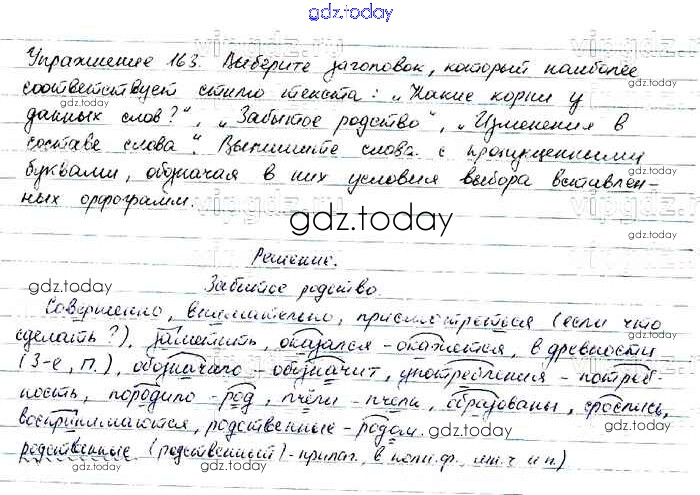 gdz.today
Упражнение 163. Выберите заголовок, который наиболее
соответствует стилю текста: „Какие корни у
данных слов?“, „Забытое родство“, „Изменения в
составе слова“. Выпишите слова с пропущенными
буквами, обозначая в них условия выбора вставлен-
ных орфограмм.
gdz.today
Решение.
Забытое родство.
Совершенно, внимательно, присмотреться (если что
сделать?), заметить, оказался - окажется, в древности
(3-е, П.), обозначало - обозначит, употребления - потреб-
ность, породило - род, пчёлы - пчела, образованы, срослись,
воспринимаются, родственные - родом.
родственные (родственный) - прилаг., в полн.ф., мн.ч и п.)